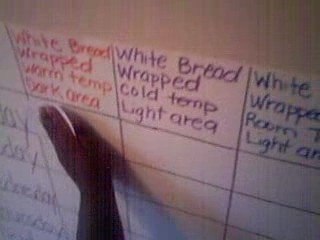 White Bread
Wrapped
Warm temp
Dark area
White Bread
Wrapped
Cold temp
Light area
White
Wrapped
Room T
Light ar